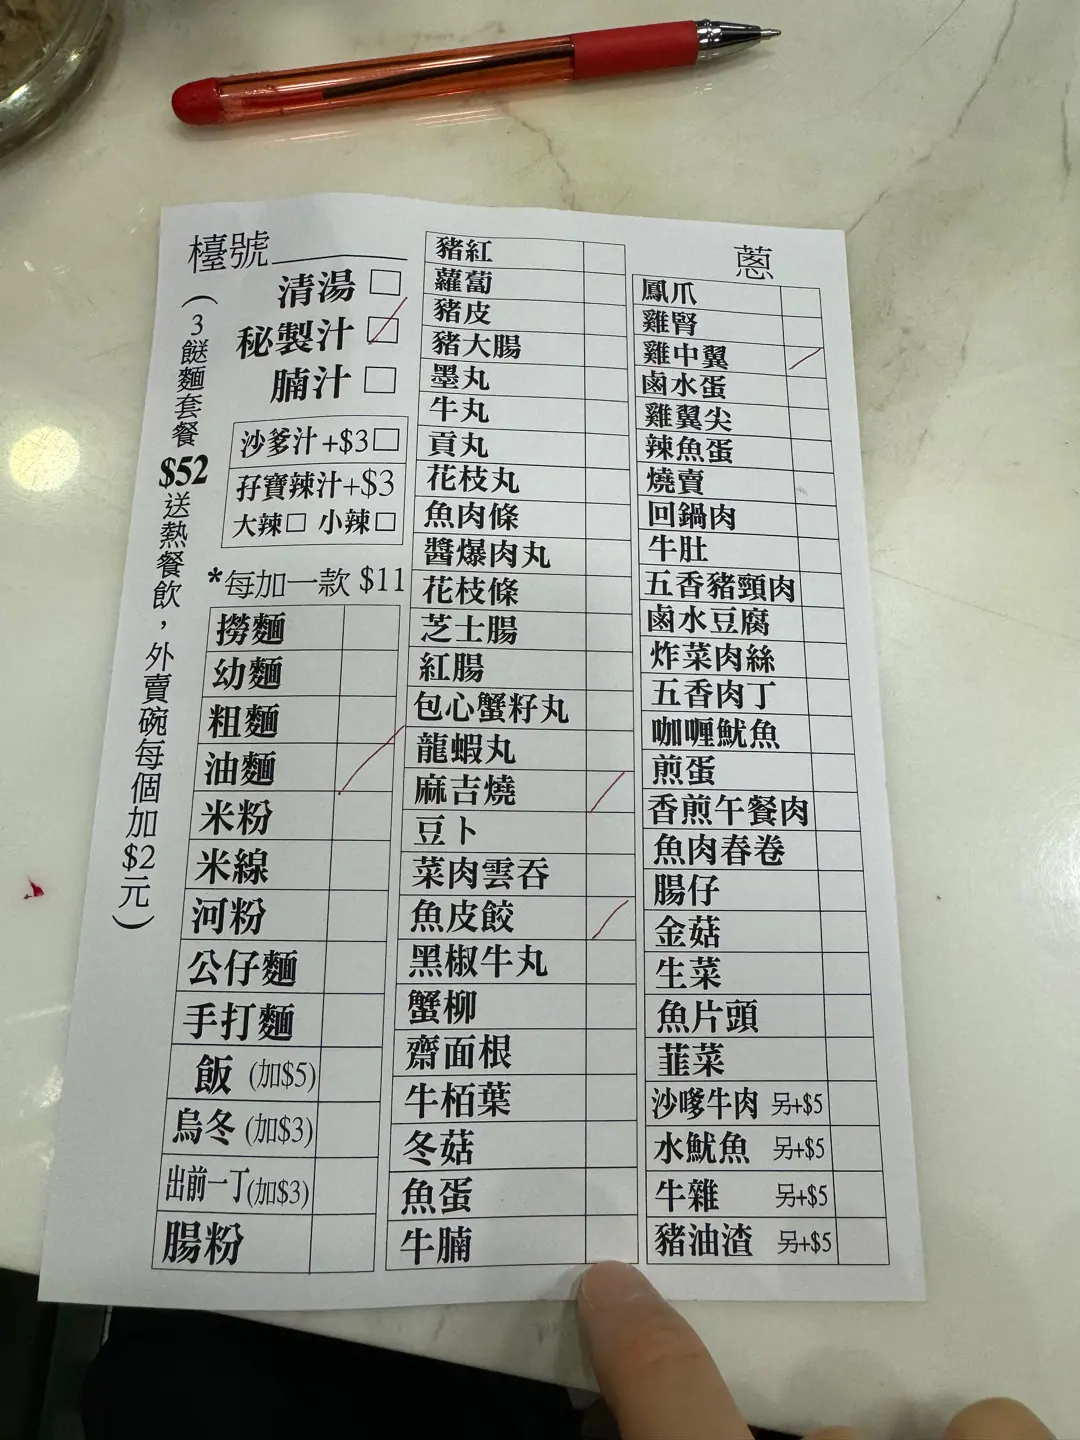 檯號
清湯
秘製汁
腩汁
沙爹汁+$3
孖寶辣汁+$3
大辣 小辣
*每加一款 $11
(3餸麵套餐$52送熱餐飲，外賣碗每個加$2元)
撈麵
幼麵
粗麵
油麵
米粉
米線
河粉
公仔麵
手打麵
飯 (加$5)
烏冬 (加$3)
出前一丁(加$3)
腸粉
豬紅
蘿蔔
豬皮
豬大腸
墨丸
牛丸
貢丸
花枝丸
魚肉條
醬爆肉丸
花枝條
芝士腸
紅腸
包心蟹籽丸
龍蝦丸
麻吉燒
豆卜
菜肉雲吞
魚皮餃
黑椒牛丸
蟹柳
齋面根
牛栢葉
冬菇
魚蛋
牛腩
蔥
鳳爪
雞腎
雞中翼
鹵水蛋
雞翼尖
辣魚蛋
燒賣
回鍋肉
牛肚
五香豬頸肉
鹵水豆腐
炸菜肉絲
五香肉丁
咖喱魷魚
煎蛋
香煎午餐肉
魚肉春卷
腸仔
金菇
生菜
魚片頭
韮菜
沙嗲牛肉 另+$5
水魷魚 另+$5
牛雜 另+$5
豬油渣 另+$5